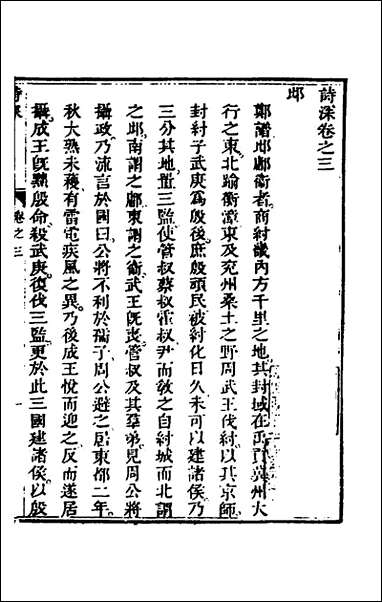 詩深卷之三
邶
鄭譜邶鄘衛者商紂畿內方千里之地其封域在禹貢冀州大
行之東北踰衡漳東及兗州桑土之野周武王伐紂以其京師
封紂子武庚爲殷後庶殷頑民被紂化日久未可以建諸侯乃
三分其地置三監使管叔蔡叔霍叔尹而敎之自紂城而北謂
之邶南謂之鄘東謂之衛武王旣喪管叔及其羣弟見周公將
攝政乃流言於國曰公將不利於孺子周公避之居東都二年
秋大熟未穫有雷電疾風之異乃後成王悅而迎之反而遂居
攝成王旣黜殷命殺武庚復伐三監更於此三國建諸侯以殷
卷之三
一